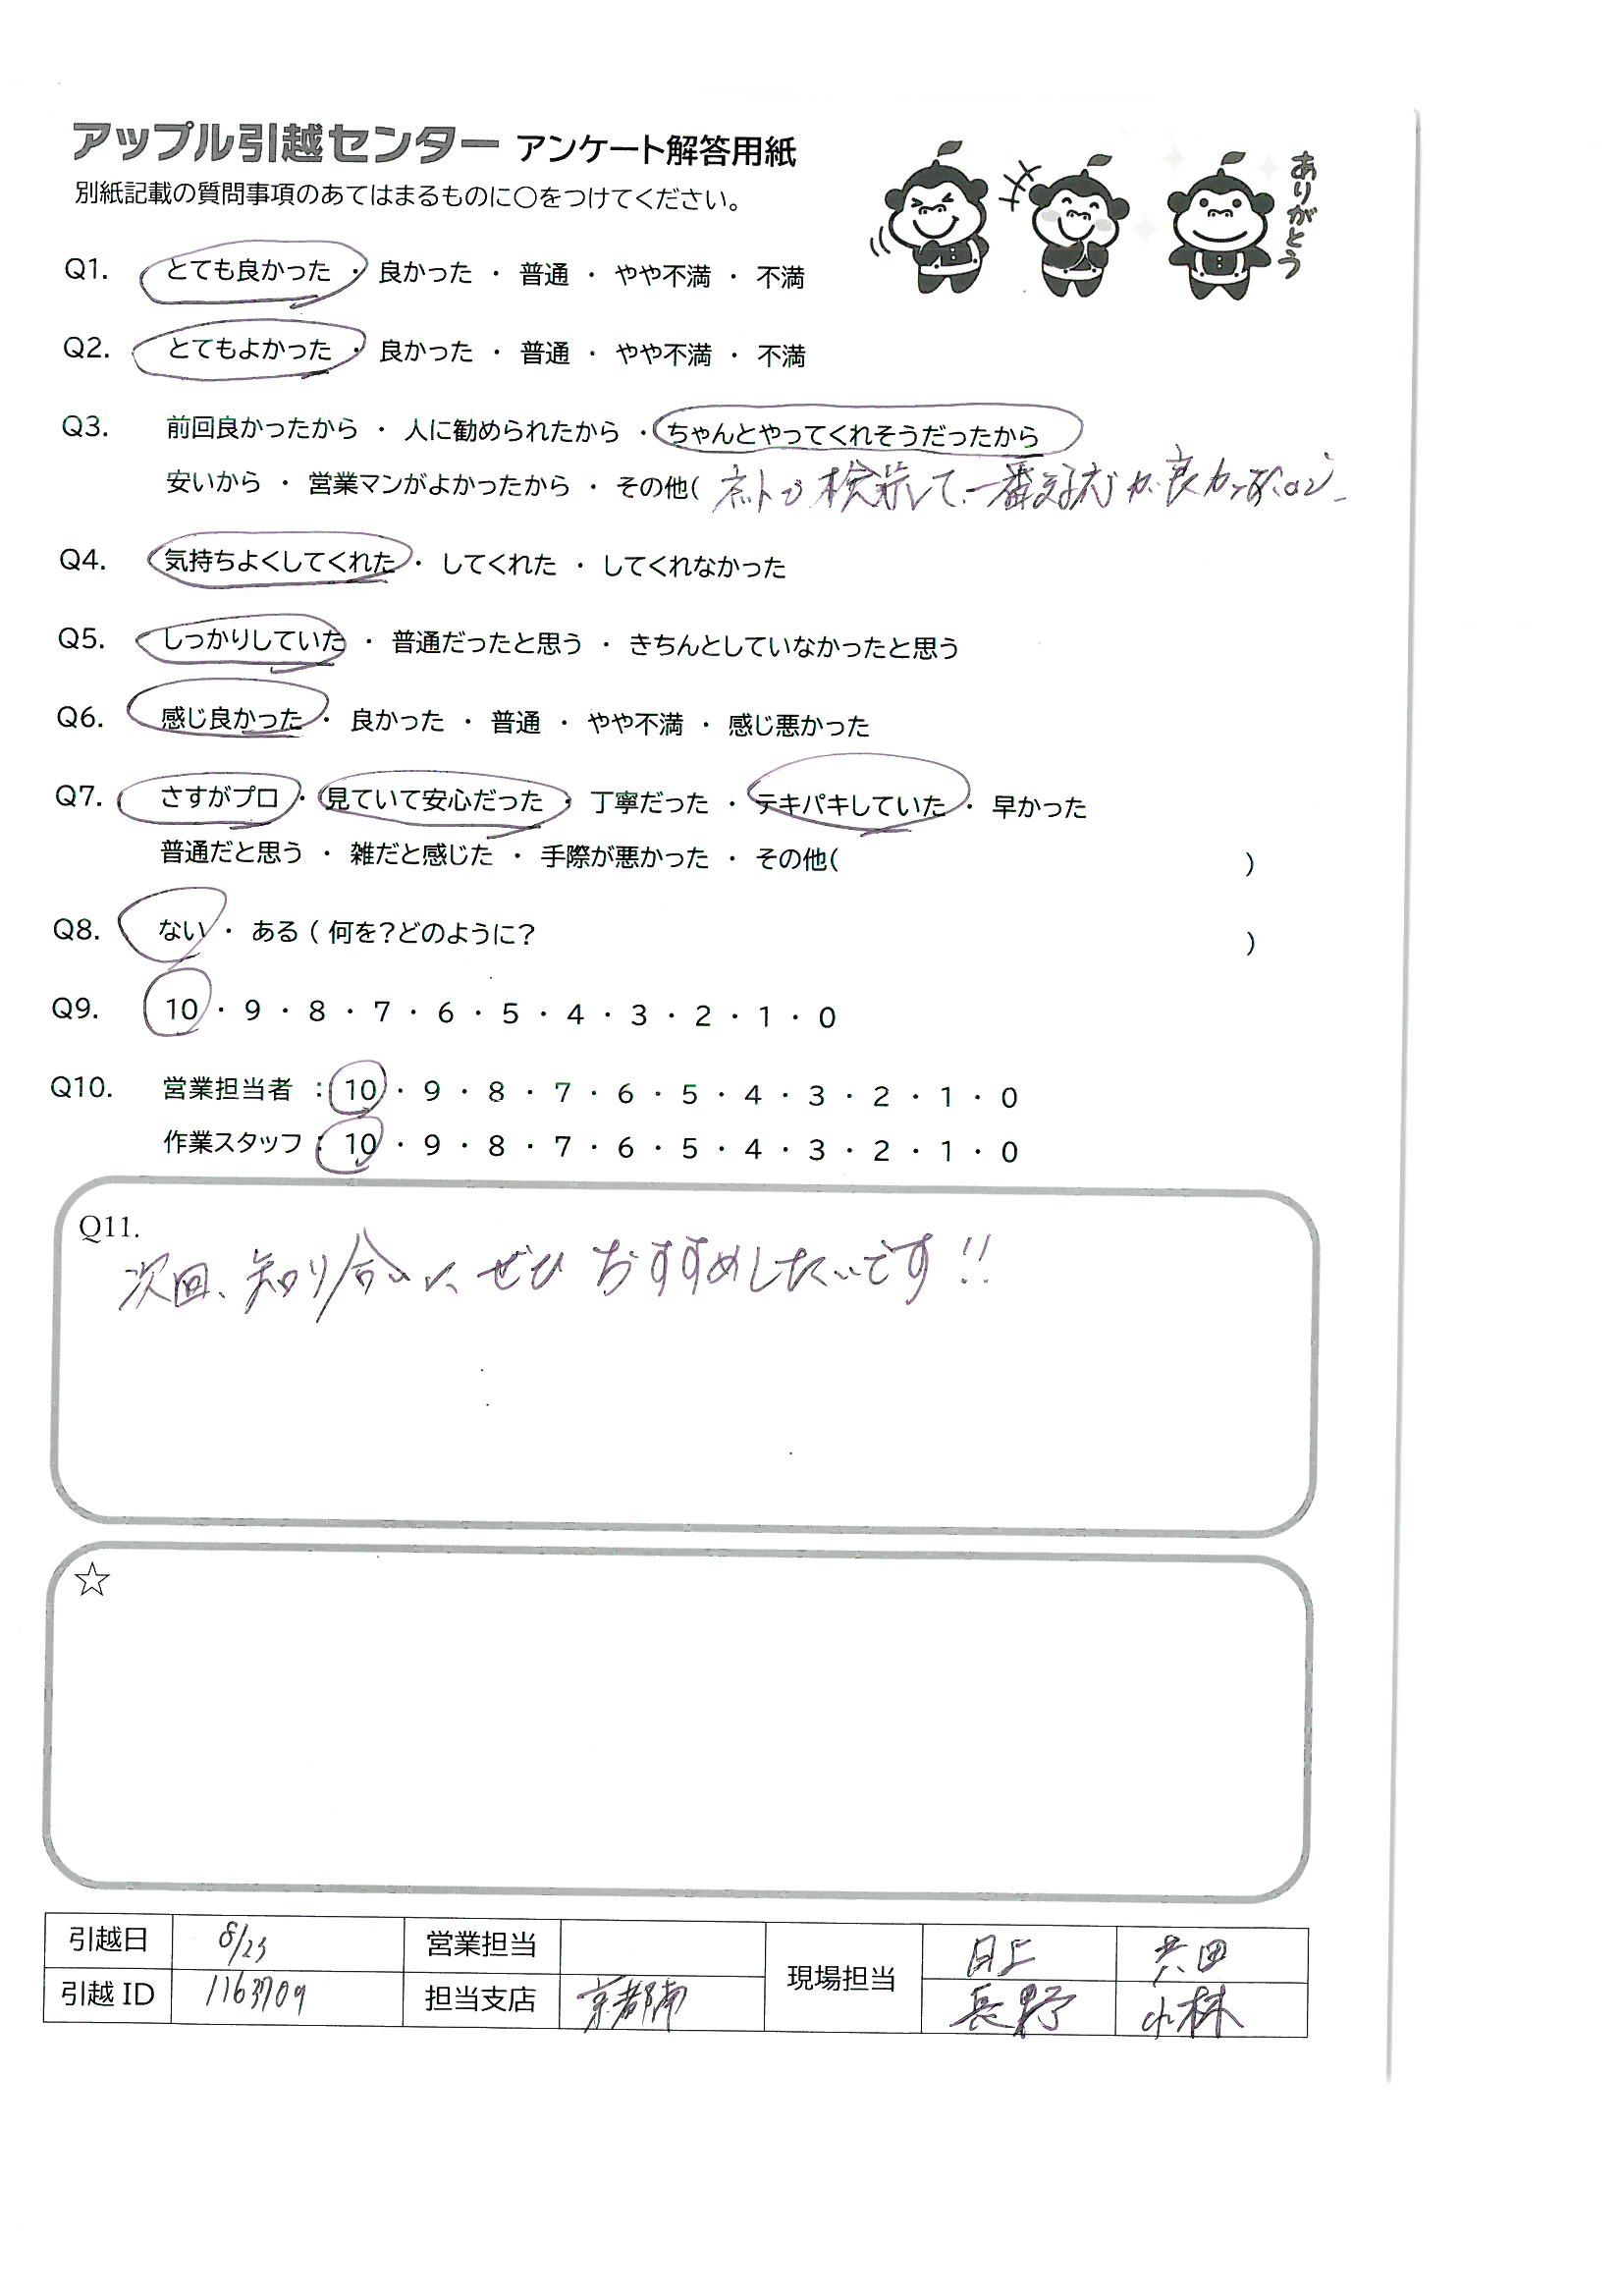 アップル引越センター アンケート解答用紙
別紙記載の質問事項のあてはまるものに〇をつけてください。
ありがとう
Q1. とても良かった ・ 良かった ・ 普通 ・ やや不満 ・ 不満
Q2. とてもよかった ・ 良かった ・ 普通 ・ やや不満 ・ 不満
Q3. 前回良かったから ・ 人に勧められたから ・ ちゃんとやってくれそうだったから
安いから ・ 営業マンがよかったから ・ その他( ネットで検索して、一番 が良かった
Q4. 気持ちよくしてくれた ・ してくれた ・ してくれなかった
Q5. しっかりしていた ・ 普通だったと思う ・ きちんとしていなかったと思う
Q6. 感じ良かった ・ 良かった ・ 普通 ・ やや不満 ・ 感じ悪かった
Q7. さすがプロ ・ 見ていて安心だった ・ 丁寧だった ・ テキパキしていた ・ 早かった
普通だと思う ・ 雑だと感じた ・ 手際が悪かった ・ その他( )
Q8. ない ・ ある ( 何を?どのように? )
Q9. 10 ・ 9 ・ 8 ・ 7 ・ 6 ・ 5 ・ 4 ・ 3 ・ 2 ・ 1 ・ 0
Q10. 営業担当者 : 10 ・ 9 ・ 8 ・ 7 ・ 6 ・ 5 ・ 4 ・ 3 ・ 2 ・ 1 ・ 0
作業スタッフ : 10 ・ 9 ・ 8 ・ 7 ・ 6 ・ 5 ・ 4 ・ 3 ・ 2 ・ 1 ・ 0
Q11.
次回、知り合いに、ぜひ おすすめしたいです!!
☆
引越日 8/23 営業担当 現場担当 日上 共田
引越 ID 1163709 担当支店 京都南 長野 小林